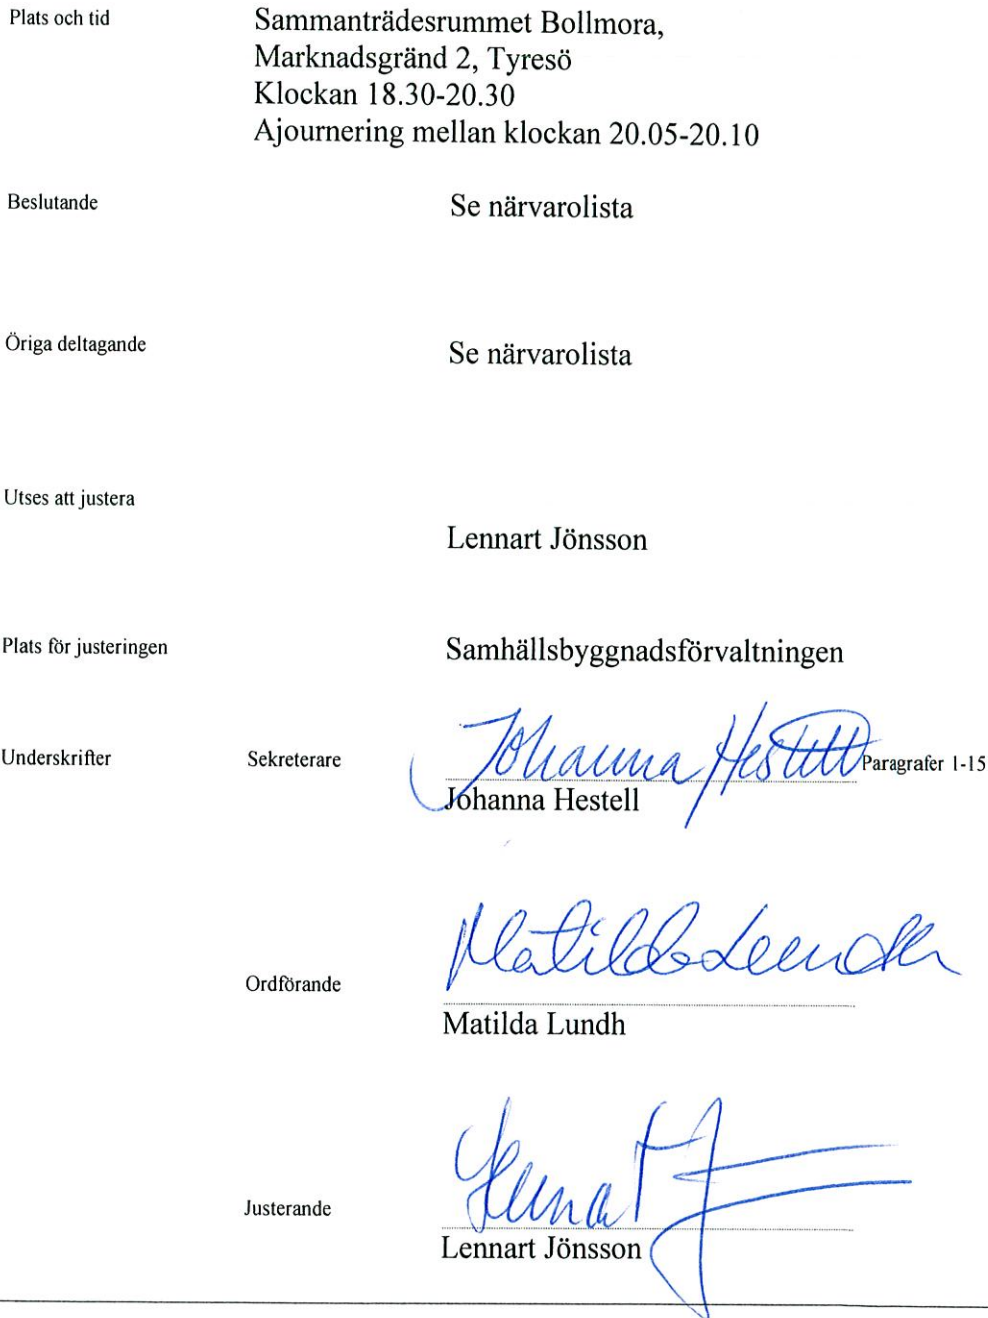 Plats och tid
Sammanträdesrummet Bollmora,
Marknadsgränd 2, Tyresö
Klockan 18.30-20.30
Ajournering mellan klockan 20.05-20.10
Beslutande
Se närvarolista
Öriga deltagande
Se närvarolista
Utses att justera
Lennart Jönsson
Plats för justeringen
Samhällsbyggnadsförvaltningen
Underskrifter
Sekreterare
Johanna Hestell
Paragrafer 1-15
Johanna Hestell
Matilda Lundh
Ordförande
Matilda Lundh
Lennart J
Justerande
Lennart Jönsson